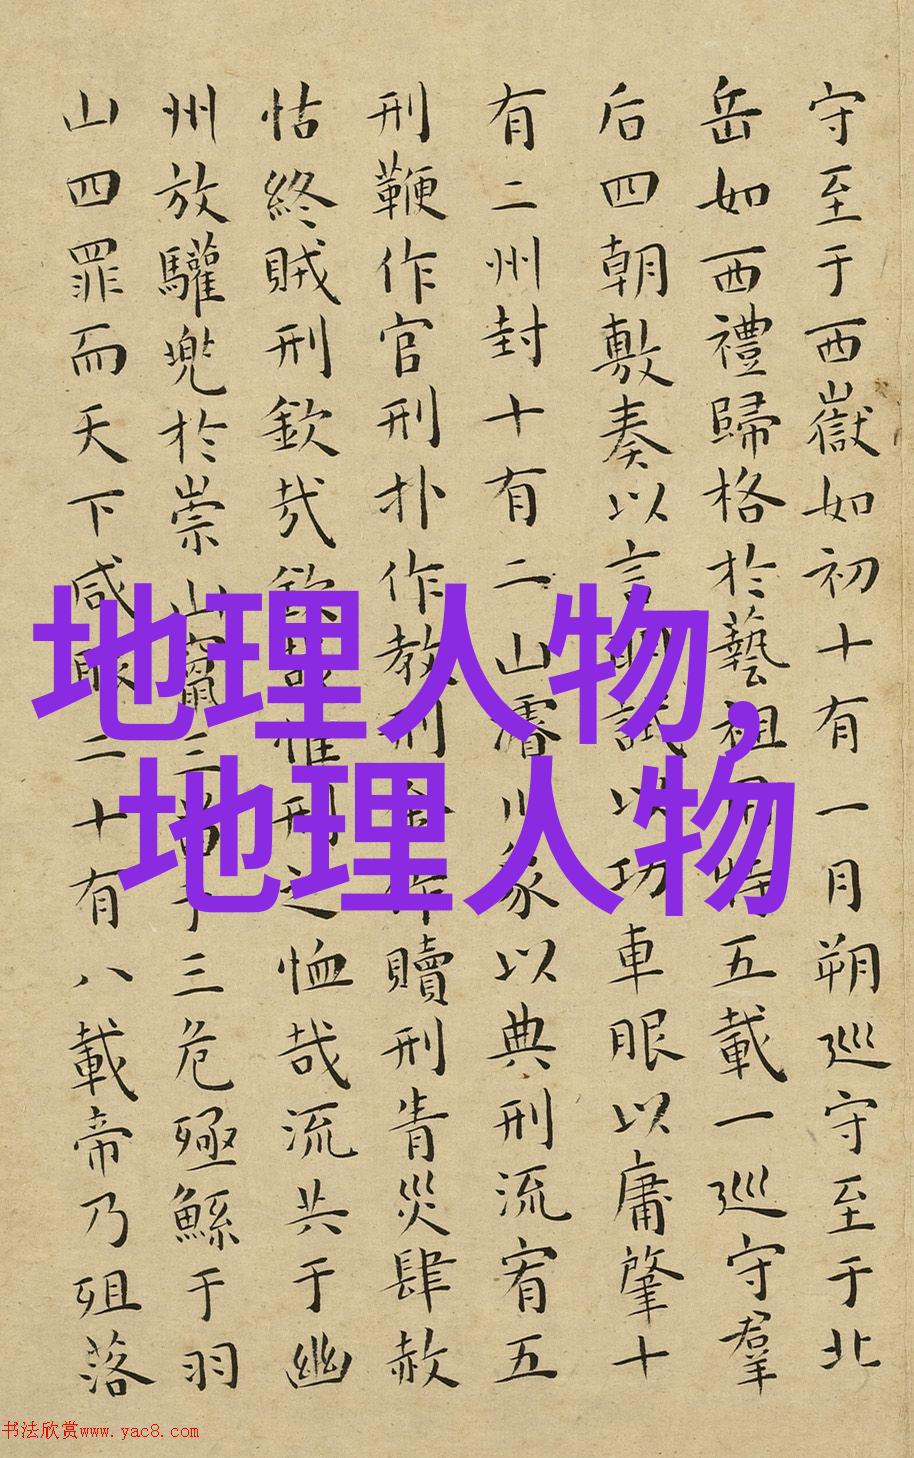 守至于西嶽如初十有一月朔巡守至于北
岳如西禮歸格於藝祖用特五載一巡守羣
后四朝敷奏以言明試以功車服以庸肇十
有二州封十有二山濬川象以典刑流宥五
刑鞭作官刑扑作教刑金作贖刑眚災肆赦
怙終賊刑欽哉欽哉惟刑之恤哉流共于幽
州放驩兜於崇山竄三苗于三危殛鯀于羽
山四罪而天下咸服二十有八載帝乃殂落
地理人物,
地理人物
书法欣赏www.yac8.com